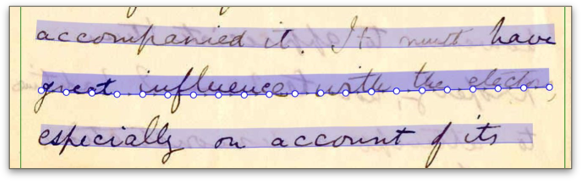 accompanied it. Its must have
great influence with the electors,
especially on account of its